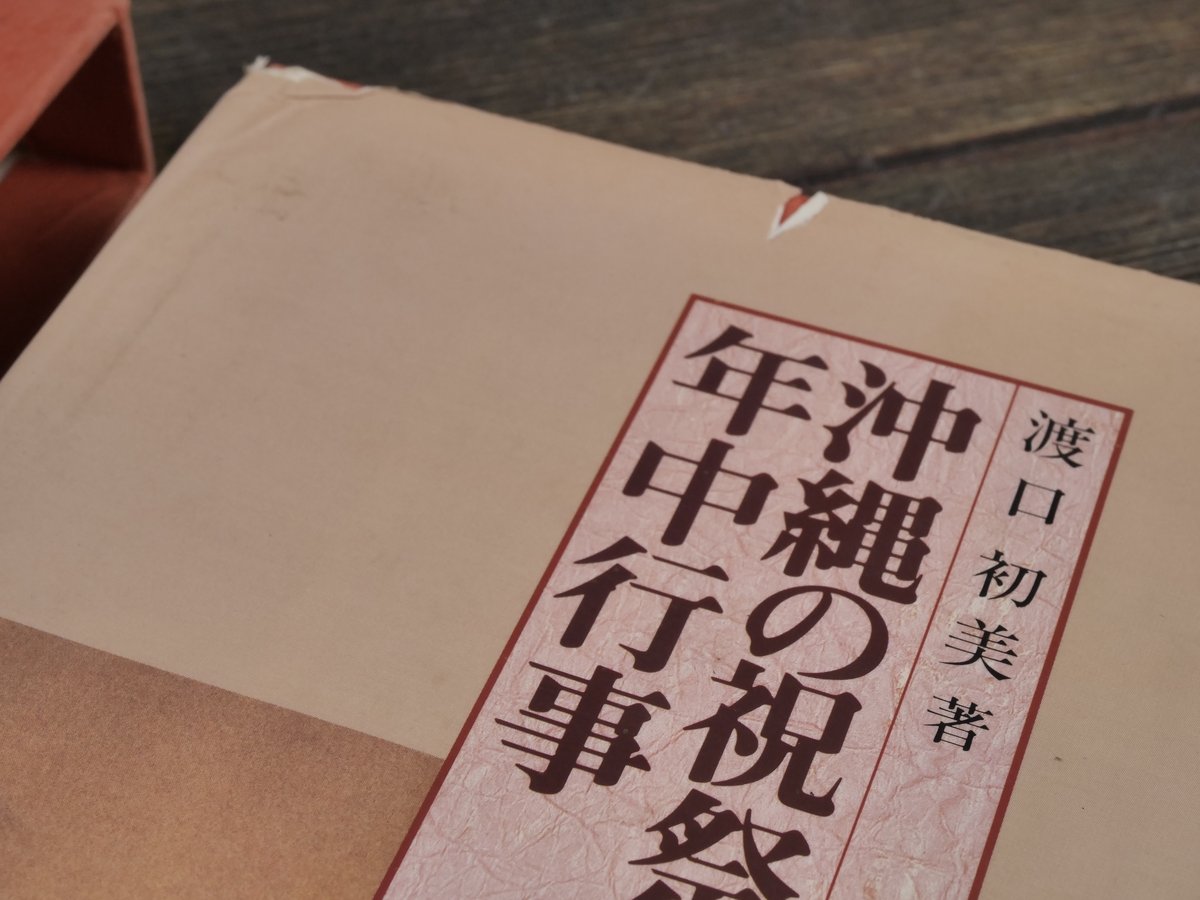 渡口初美著
沖縄の祝祭
年中行事